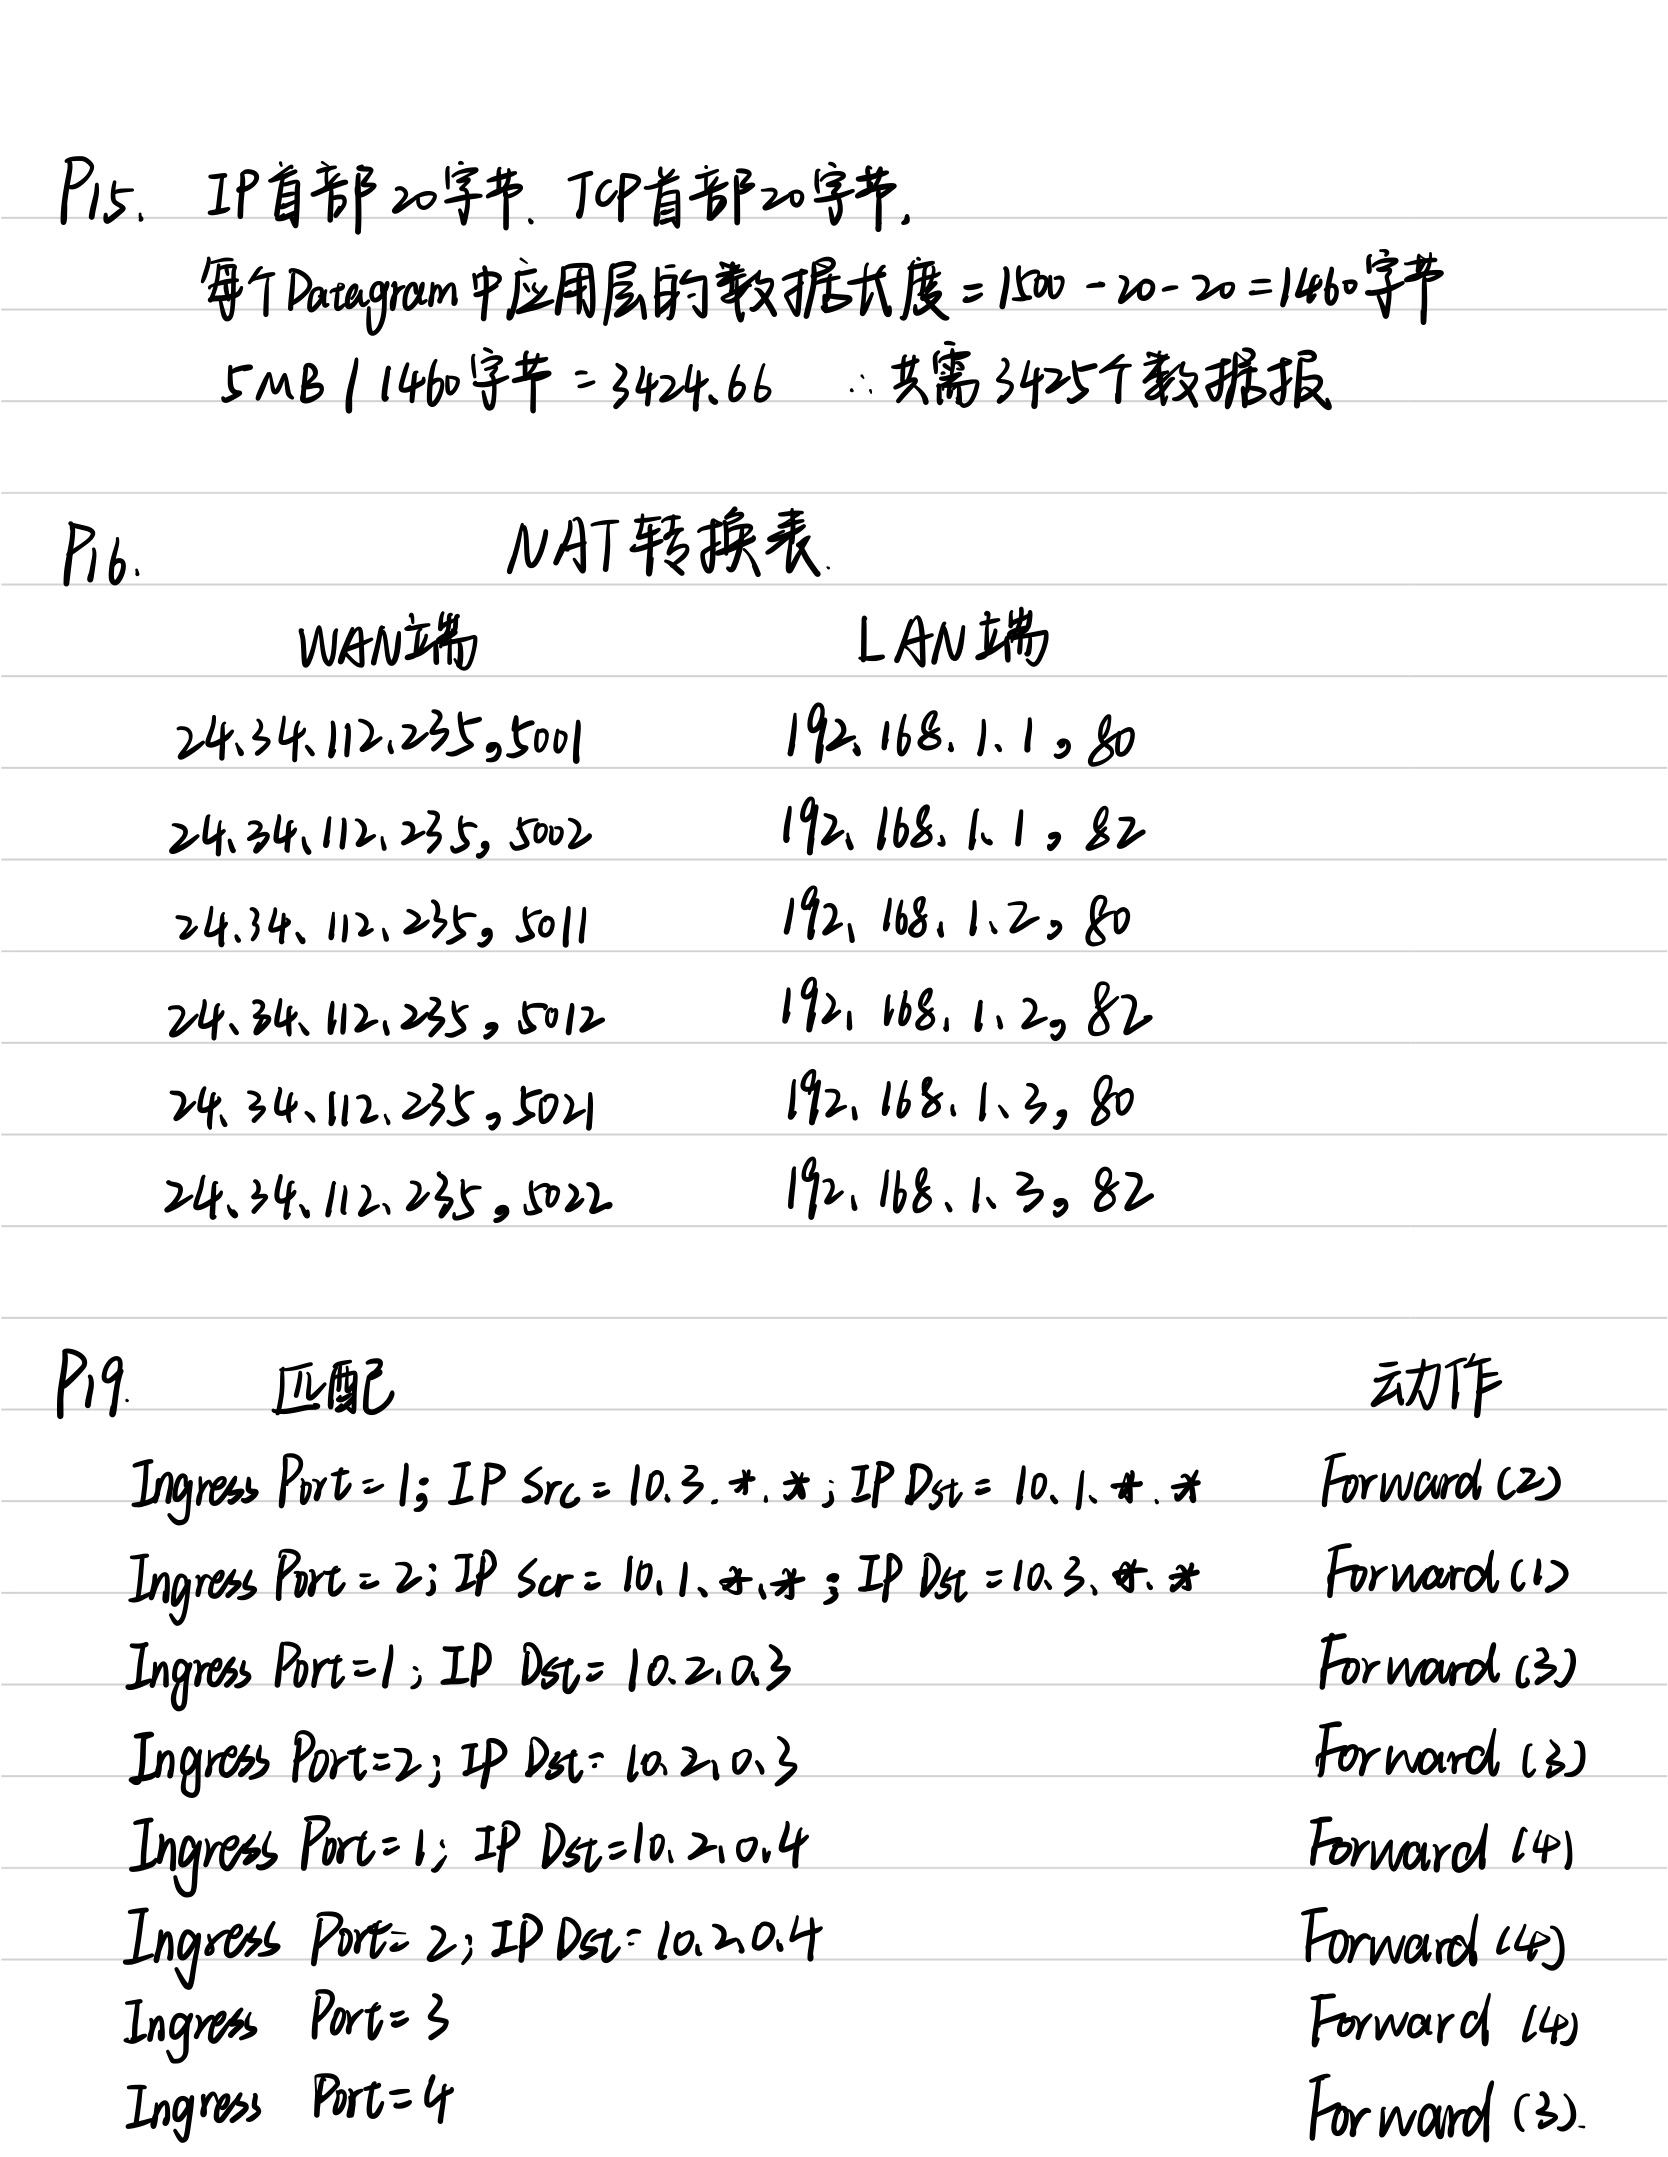 P15. IP首部20字节. TCP首部20字节.
每个Datagram中应用层的数据长度=1500-20-20=1460字节
5MB / 1460字节 = 3424.66 ∴共需3425个数据报
P16. NAT转换表.
WAN端 LAN端
24.34.112.235,5001 192.168.1.1,80
24.34.112.235,5002 192.168.1.1,82
24.34.112.235,5011 192.168.1.2,80
24.34.112.235,5012 192.168.1.2,82
24.34.112.235,5021 192.168.1.3,80
24.34.112.235,5022 192.168.1.3,82
P19. 匹配 动作
Ingress Port=1; IP Src=10.3.*.*; IP Dst=10.1.*.* Forward (2)
Ingress Port=2; IP Scr=10.1.*.*; IP Dst=10.3.*.* Forward (1)
Ingress Port=1; IP Dst=10.2.0.3 Forward (3)
Ingress Port=2; IP Dst=10.2.0.3 Forward (3)
Ingress Port=1; IP Dst=10.2.0.4 Forward (4)
Ingress Port=2; IP Dst=10.2.0.4 Forward (4)
Ingress Port=3 Forward (4)
Ingress Port=4 Forward (3).